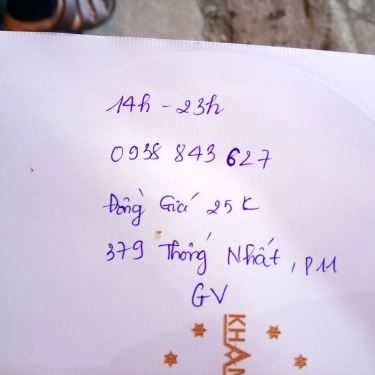 14h - 23h
0938 843 627
Đồng Giá 25K
379 Thống Nhất, P11
GV
KHĂN